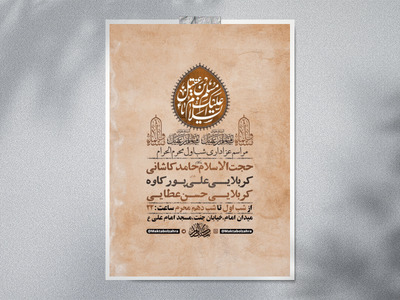 السلام علیک یا مسلم بن عقیل
مراسم عزاداری شب اول محرم الحرام
حجت الاسلام حامد کاشانی
کربلایی علی پور کاوه
کربلایی حسن عطایی
از شب اول تا شب دهم محرم ساعت: ۲۲
میدان امام، خیابان جنت، مسجد امام علی ع
@Maktabolzahra @Maktabolzahra